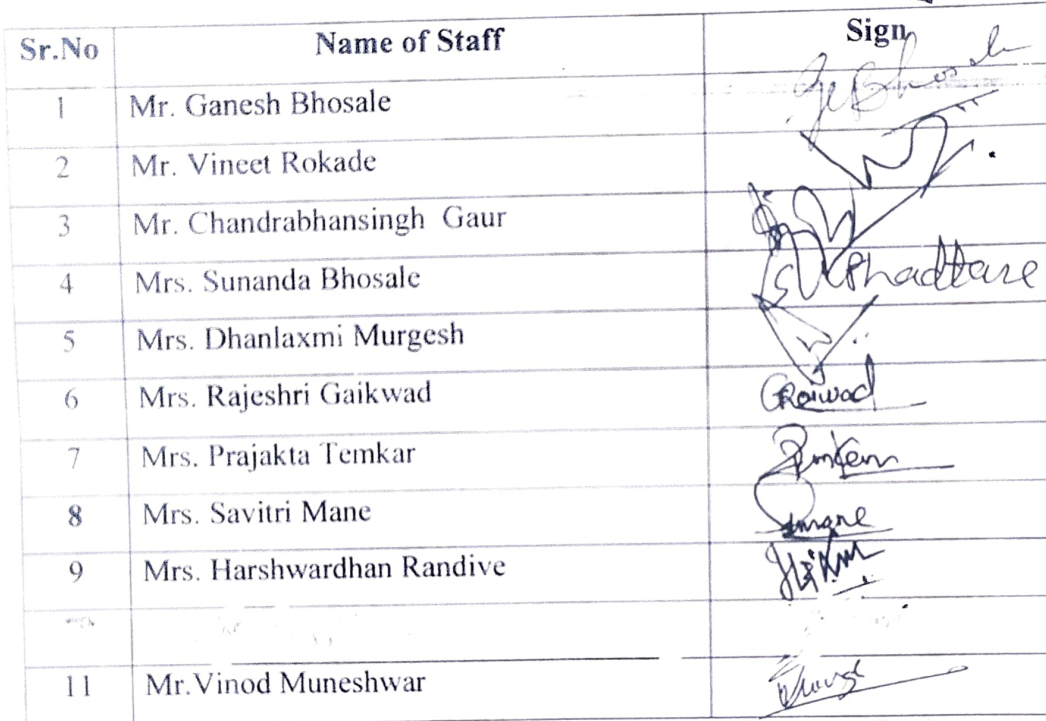 Sr.No Name of Staff Sign
GeBhosale
1 Mr. Ganesh Bhosale
2 Mr. Vineet Rokade
3 Mr. Chandrabhansingh Gaur
4 Mrs. Sunanda Bhosale SVPhadtare
5 Mrs. Dhanlaxmi Murgesh
6 Mrs. Rajeshri Gaikwad
7 Mrs. Prajakta Temkar
8 Mrs. Savitri Mane Smane
9 Mrs. Harshwardhan Randive
11 Mr.Vinod Muneshwar